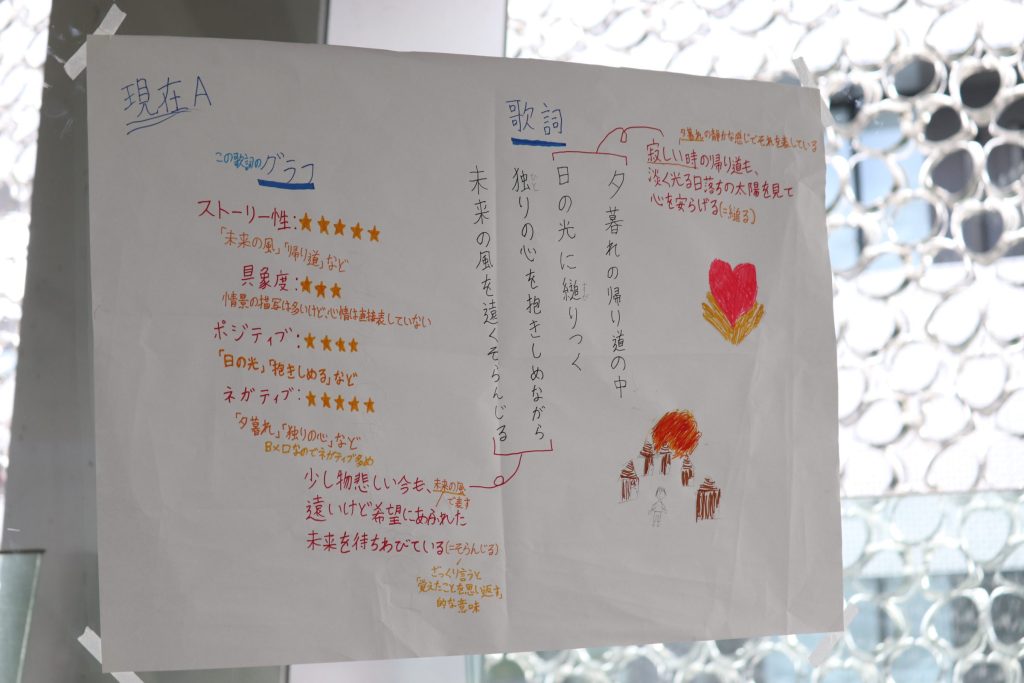 現在A
この歌詞のグラフ
ストーリー性:★★★★★
「未来の風」「帰り道」など
具象度:★★★
情景の描写は多いけど、心情は直接表していない
ポジティブ:★★★★
「日の光」「抱きしめる」など
ネガティブ:★★★★★
「夕暮れ」「独りの心」など
Bメロなのでネガティブ多め
歌詞
夕暮れの帰り道の中
日の光に縋りつく
独りの心を抱きしめながら
ひと
未来の風を遠くそらんじる
夕暮れの静かな感じでそれを表している
寂しい時の帰り道も、
淡く光る日落ちの太陽を見て
心を安らげる(=縋る)
少し物悲しい今も、
未来の風
で表す
遠いけど希望にあふれた
未来を待ちわびている(=そらんじる)
ざっくり言うと
「覚えたことを思い返す」
的な意味